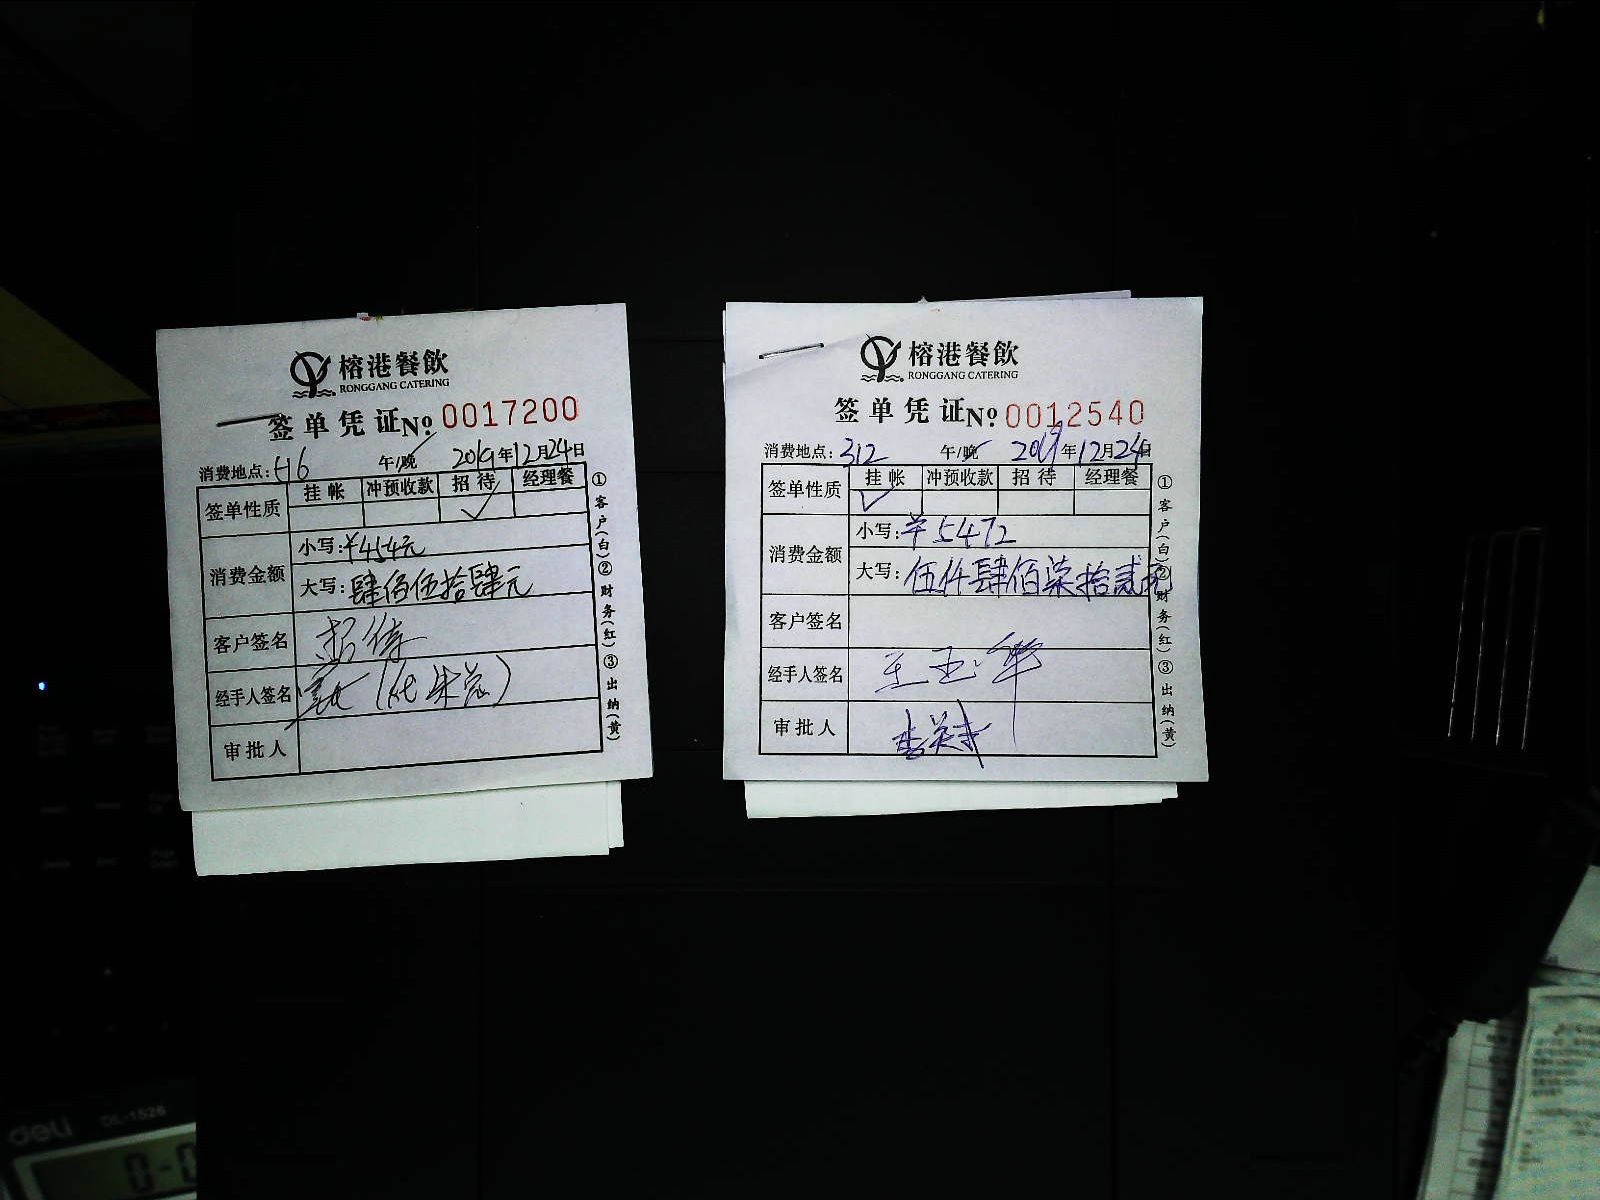 榕港餐飲
RONGGANG CATERING
签单凭证No 0017200
消费地点:H6 午/晚 2019年12月24日
签单性质 挂帐 冲预收款 招待 经理餐
✓
消费金额 小写:¥454元
大写:肆佰伍拾肆元
客户签名 招待
经手人签名 (代朱总)
审批人
①客户(白)②财务(红)③出纳(黄)
榕港餐飲
RONGGANG CATERING
签单凭证No 0012540
消费地点:312 午/晚 2019年12月24日
签单性质 挂帐 冲预收款 招待 经理餐
✓
消费金额 小写:¥5472
大写:伍仟肆佰柒拾贰元
客户签名
经手人签名 王玉华
审批人
①客户(白)②财务(红)③出纳(黄)
deli DL-1526